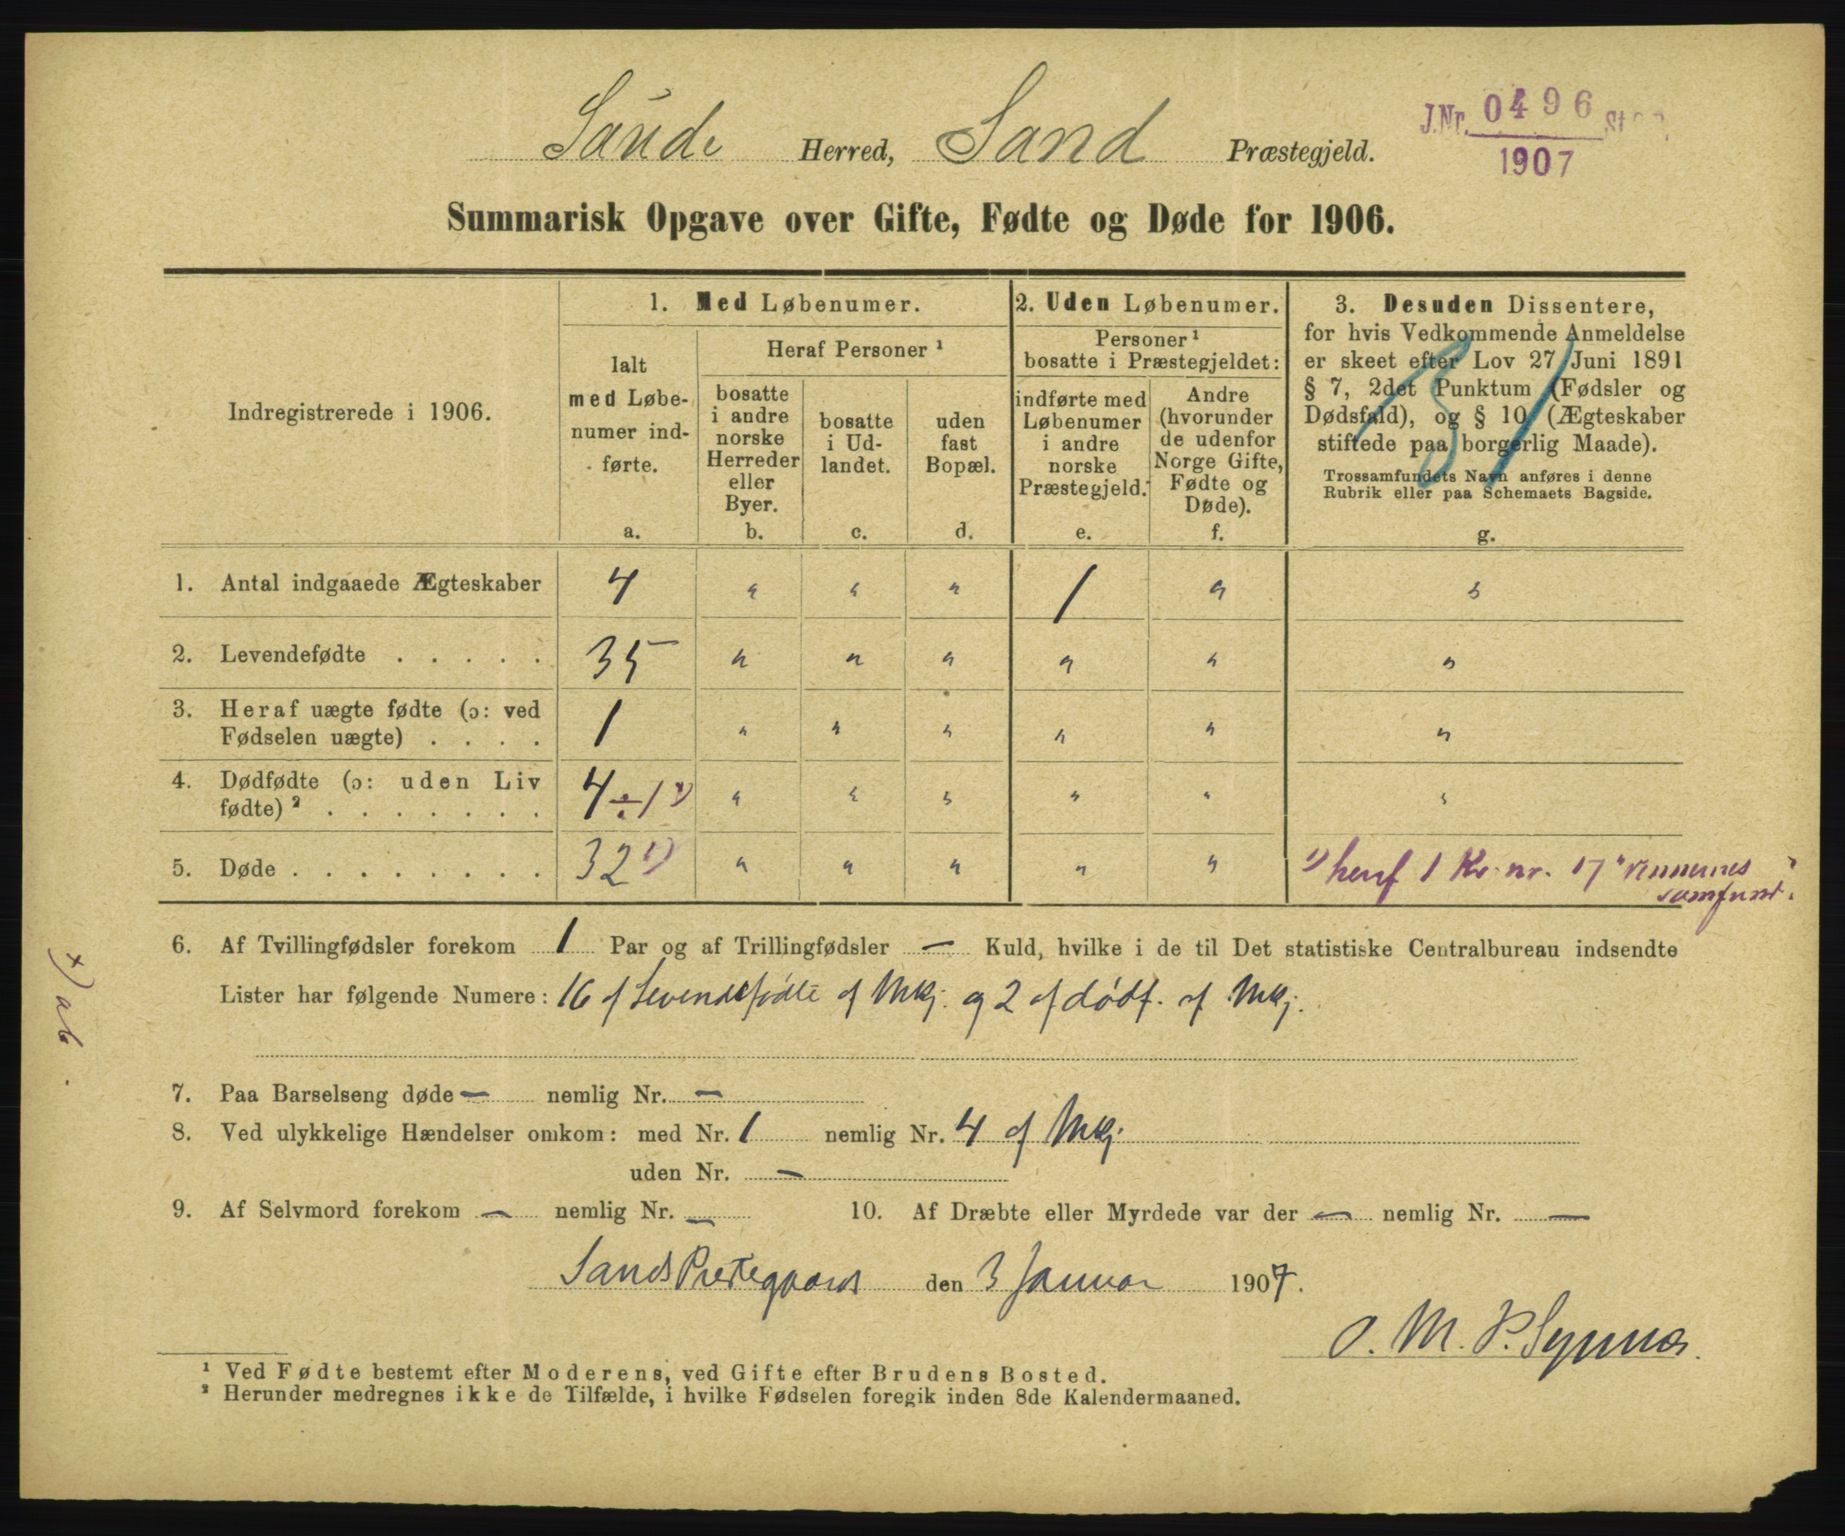 Saude Herred, Sand Præstegjeld.
J.Nr. 0496
1907
Summarisk Opgave over Gifte, Fødte og Døde for 1906.
Indregistrerede i 1906.
1. Med Løbenumer.
Ialt
med Løbe-
numer ind-
førte.
a.
Heraf Personer ¹
bosatte
i andre
norske
Herreder
eller
Byer.
b.
bosatte
i Ud-
landet.
c.
uden
fast
Bopæl.
d.
2. Uden Løbenumer.
Personer ¹
bosatte i Præstegjeldet:
indførte med
Løbenumer
i andre
norske
Præstegjeld.
e.
Andre
(hvorunder
de udenfor
Norge Gifte,
Fødte og
Døde).
f.
3. Desuden Dissentere,
for hvis Vedkommende Anmeldelse
er skeet efter Lov 27 Juni 1891
§ 7, 2det Punktum (Fødsler og
Dødsfald), og § 10 (Ægteskaber
stiftede paa borgerlig Maade).
Trossamfundets Navn anføres i denne
Rubrik eller paa Schemaets Bagside.
g.
1. Antal indgaaede Ægteskaber 4 " " " 1 " "
2. Levendefødte . . . . . 35 " " " " " "
3. Heraf uægte fødte (ɔ: ved
Fødselen uægte) . . . . 1 " " " " " "
4. Dødfødte (ɔ: uden Liv
fødte) ² . . . . . . . 4 ÷ 1 ˣ) " " " " " "
5. Døde . . . . . . . . 32 ¹) " " " " " ¹) heraf 1 Kv. nr. 17 "Vennernes
samfund".
6. Af Tvillingfødsler forekom 1 Par og af Trillingfødsler — Kuld, hvilke i de til Det statistiske Centralbureau indsendte
Lister har følgende Numere: 16 af Levendefødte af Mkj. og 2 af dødf. af Mkj.
x) ab.
7. Paa Barselseng døde — nemlig Nr. —
8. Ved ulykkelige Hændelser omkom: med Nr. 1 nemlig Nr. 4 af Mkj.
uden Nr. —
9. Af Selvmord forekom — nemlig Nr. — 10. Af Dræbte eller Myrdede var der — nemlig Nr. —
Sands Prestegaard den 3 Januar 1907.
O. M. P. Synnes.
¹ Ved Fødte bestemt efter Moderens, ved Gifte efter Brudens Bosted.
² Herunder medregnes ikke de Tilfælde, i hvilke Fødselen foregik inden 8de Kalendermaaned.